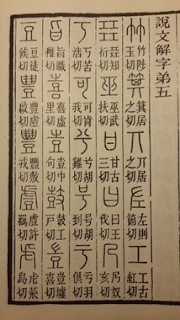 說文解字弟五
竹竹陟玉切 箕箕居之切 丌丌居之切 左左則箇切 工工古紅切
㠭㠭知衍切 巫巫武扶切 甘甘古三切 曰曰王伐切 乃乃奴亥切
丂丂苦浩切 可可肯我切 兮兮胡雞切 号号胡到切 亏亏羽俱切
旨旨職雉切 喜喜虛里切 壴壴中句切 鼓鼓工戶切 豈豈墟喜切
豆豆徒候切 豊豊盧啟切 豐豐敷戎切 䖒䖒許羈切 虍虍荒烏切